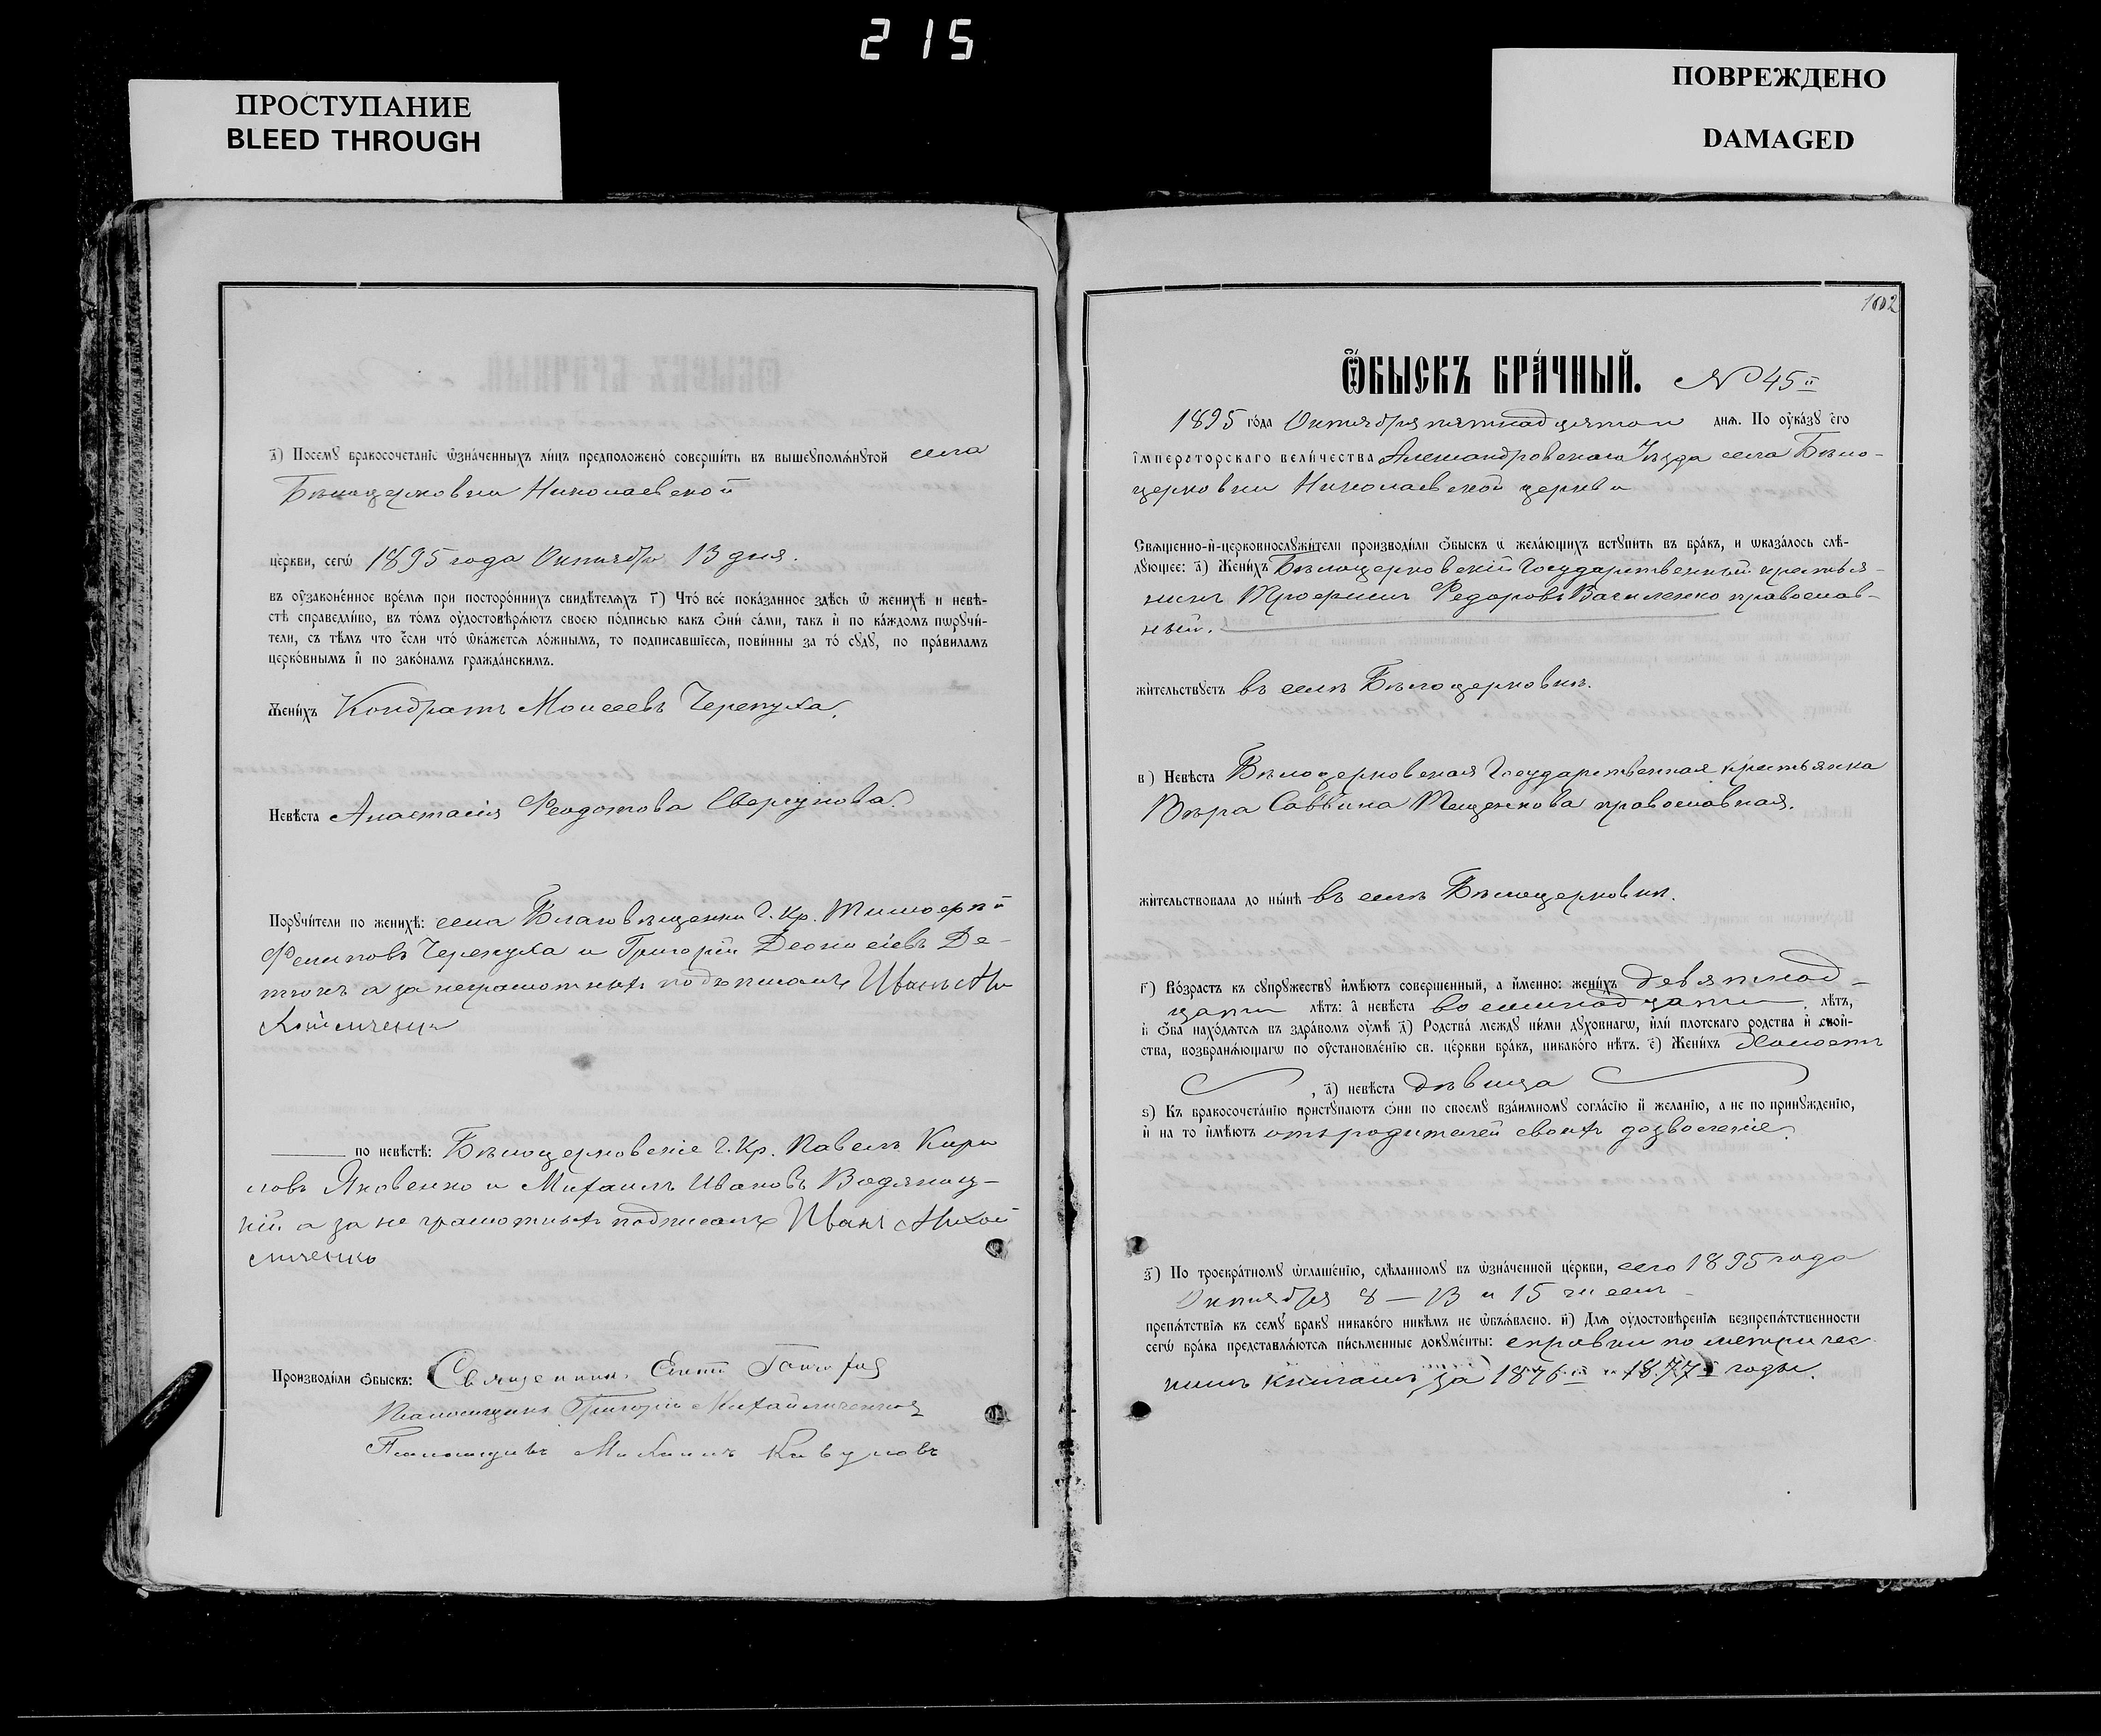 215
ПРОСТУПАНИЕ
BLEED THROUGH
ПОВРЕЖДЕНО
DAMAGED
д҃) Посемꙋ бракосочетанїе ѡ҆зна́ченныхъ ли́цъ предположено́ соверши́ть въ вышеꙋпомѧ́нꙋтой села
Бѣлоцерковки Николаевской
це́ркви, сегѡ̀ 1895 года Октября 13 дня.
въ ᲂу҆зако́не́нное вре́мѧ при посторо́ннихъ свидѣ́телѧхъ г҃) Что̀ всѐ пока́занное здѣ́сь ѡ҆ женихѣ̀ и невѣ́-
стѣ справедли́во, въ то́мъ ᲂу҆достовѣрѧ́ютъ своею по́дписью какъ ѻ҆нѝ са́ми, та́къ и҆ по ка́ждомъ порꙋчи́-
тели, съ тѣ́мъ что е҆́сли что̀ ѡ҆ка́жетсѧ ло́жнымъ, то подписавшїесѧ, пови́нны за то̀ сꙋдꙋ̀, по пра́виламъ
церко́внымъ и҆ по зако́намъ гражда́нскимъ.
Жени́хъ Кондратъ Моисеевъ Черепуха.
Невѣ́ста Анастасія Феодотова Свергунова.
Порꙋчи́тели по женихѣ̀: села Благовѣщенки Г. Кр. Тимофей
Филиповъ Черепуха и Григорій Деонисіевъ Де-
тюкъ а за неграмотныхъ подъписалъ Иванъ Ми
хайличенко
по невѣ́стѣ: Бѣлоцерковскіе Г. Кр. Павелъ Кири
ловъ Яковенко и Михаилъ Ивановъ Водяниц-
кій а за не грамотныхъ подписалъ Иванъ Михай
личенко
Производи́ли ѻ҆́быскъ: Священникъ
Псаломщикъ Григорій Михайличенко
Псаломщикъ Михаилъ Кавуновъ
102
Ѻ҆БЫСКЪ БРА́ЧНЫЙ. № 45й
1895 го́да Октября пятнадцятаго днѧ. По ᲂу҆ка́зꙋ є҆гѡ̀
і҆мператорскаго вели́чества Александровскаго Уѣзда села Бѣло-
церковки Николаевской церкви
Свѧще́нно-и҆-церковнослꙋжи́тели производи́ли ѻ҆́быскъ ѡ҆ жела́ющихъ встꙋпи́ть въ бра́къ, и ѡ҆каза́лось слѣ́-
дꙋющее: а҃) Жени́хъ Бѣлоцерковскій Государственный крестья-
нинъ Трофимъ Федоровъ Василенко православ-
ный.
жи́тельствꙋетъ въ селѣ Бѣлоцерковкѣ.
в҃) Невѣ́ста Бѣлоцерковская Государственная крестьянка
Вѣра Саввина Тищенкова православная.
жи́тельствовала до ны́нѣ въ селѣ Бѣлоцерковкѣ.
г҃) Во́зрастъ къ сꙋпрꙋ́жествꙋ и҆мѣ́ютъ совершенный, а и҆́менно: жени́хъ девятнад-
цати лѣ́тъ: а҆ невѣ́ста восемнадцати лѣ́тъ,
и҆ ѻ҆́ба нахо́дѧтсѧ въ здра́вомъ ᲂу҆мѣ̀ д҃) Родства̀ междꙋ ни́ми дꙋховнагѡ, и҆лѝ плотскаго родства и҆ свой-
ства, возбранѧ́ющагѡ по ᲂу҆становле́нїю св. це́ркви бра́къ, никако́го нѣ́тъ. е҃) Жени́хъ холостъ
, д҃) невѣ́ста дѣвица
ѕ҃) Къ бракосочета́нїю пристꙋпа́ютъ ѻ҆нѝ по своемꙋ̀ взаи́мномꙋ согла́сїю и҆ желанїю, а не по принꙋжденїю,
и҆ на то и҆мѣ́ютъ отъ родителей своихъ дозволеніе.
з҃) По троекра́тномꙋ ѡ҆глаше́нїю, сдѣ́ланномꙋ въ ѡ҆зна́ченной це́ркви, сего 1895 года
Октября 8 — 13 и 15 чиселъ
препѧ́тствїѧ къ семꙋ̀ бракꙋ никако́го никѣ́мъ не ѡ҆бъѧ́влено. и҃) Длѧ ᲂу҆достовѣ́ренїѧ безпрепѧ́тственности
сегѡ̀ бра́ка представлѧ́ютсѧ пи́сьменные докꙋме́нты: справки по метричес
кимъ книгамъ за 1876й и 1877й годы.